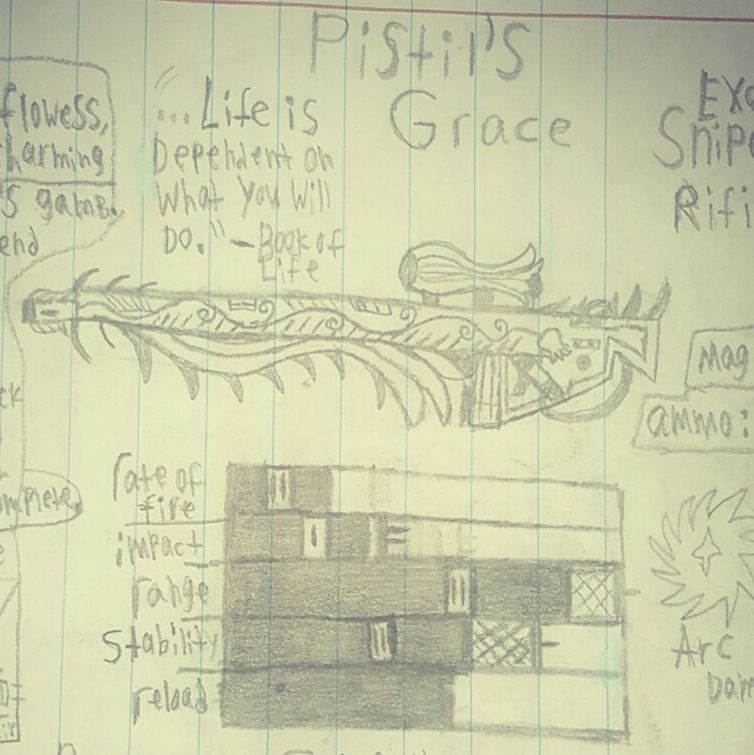 Pistil's
Grace
flowess,
harming
s game.
end
"...Life is
Dependent on
What you will
Do." - Book of
Life
Exo
Snipe
Rifl
mag
ammo:
ck
omplete
rate of
fire
impact
range
Stability
reload
Arc
Dam